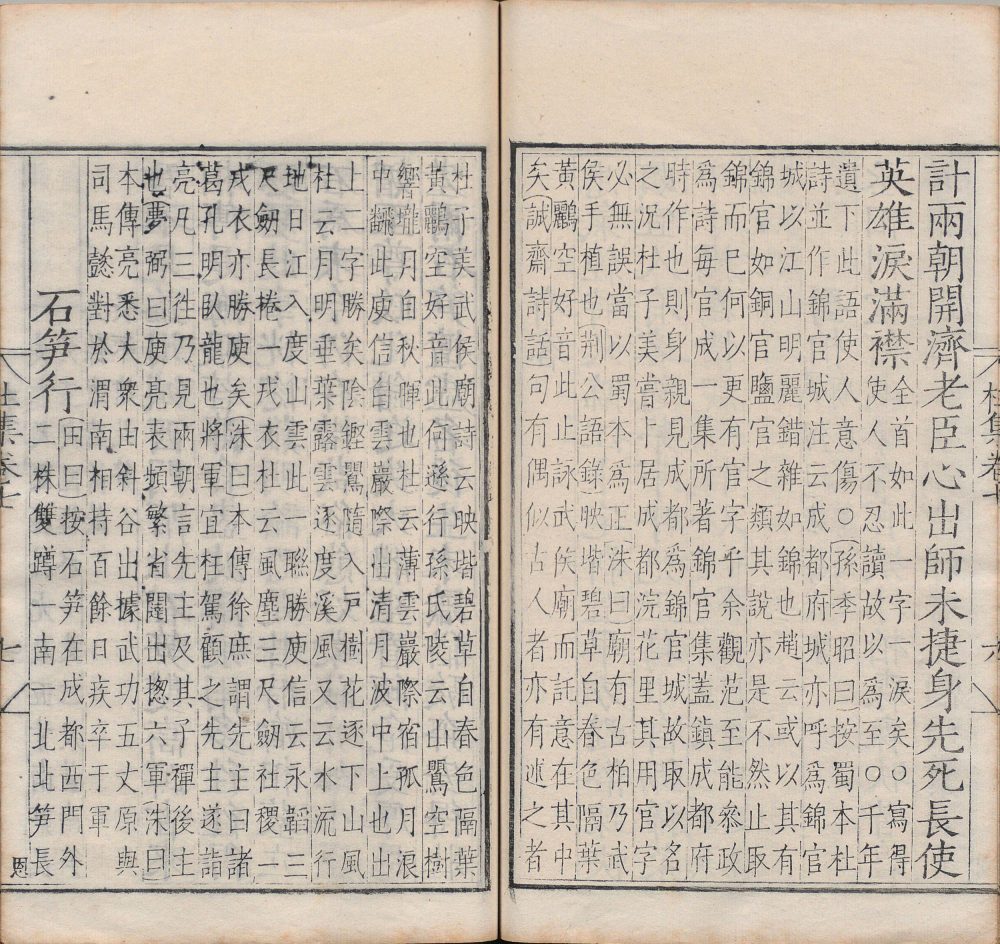 計兩朝開濟老臣心出師未捷身先死長使
英雄淚滿襟全首如此一字一淚矣○寫得
使人不忍讀故以爲至○千年
遺下此語使人意傷○孫季昭曰按蜀本杜
詩並作錦官城注云成都府城亦呼爲錦官
城以江山明麗錯雜如錦也趙云或以其有
錦官如銅官鹽官之類其說亦是不然止取
錦而已何以更有官字乎余觀范至能參政
爲詩毎官成一集所著錦官集蓋鎮成都府
時作也則身親見成都爲錦官城故取以名
之況杜子美嘗卜居成都浣花里其用官字
必無誤當以蜀本爲正洙曰廟有古柏乃武
侯手植也荆公語錄映堦碧草自春色隔葉
黃鸝空好音此止詠武侯廟而託意在其中
矣誠齋詩話句有偶似古人者亦有述之者
杜集卷七
六
杜子美武侯廟詩云映堦碧草自春色隔葉
黃鸝空好音此何遜行孫氏陵云山鸎空樹
響壠月自秋暉也杜云薄雲巖際宿孤月浪
中飜此庾信白雲巖際出清月波中上也出
上二字勝矣陰鏗鸎隨入戸樹花逐下山風
杜云月明垂葉露雲逐度溪風又云水流行
地日江入度山雲此一聯勝庾信云永韜三
尺劔長捲一戎衣杜云風塵三尺劔社稷一
戎衣亦勝庾矣洙曰本傳徐庶謂先主曰諸
葛孔明臥龍也將軍宜枉駕顧之先主遂詣
亮凡三往乃見兩朝言先主及其子禪後主
也夢弼曰庾亮表頻繁省闥出揔六軍洙曰
本傳亮悉大衆由斜谷出據武功五丈原與
司馬懿對於渭南相持百餘日疾卒于軍
石笋行田曰按石笋在成都西門外
二株雙蹲一南一北北笋長
杜集卷七
七
恩